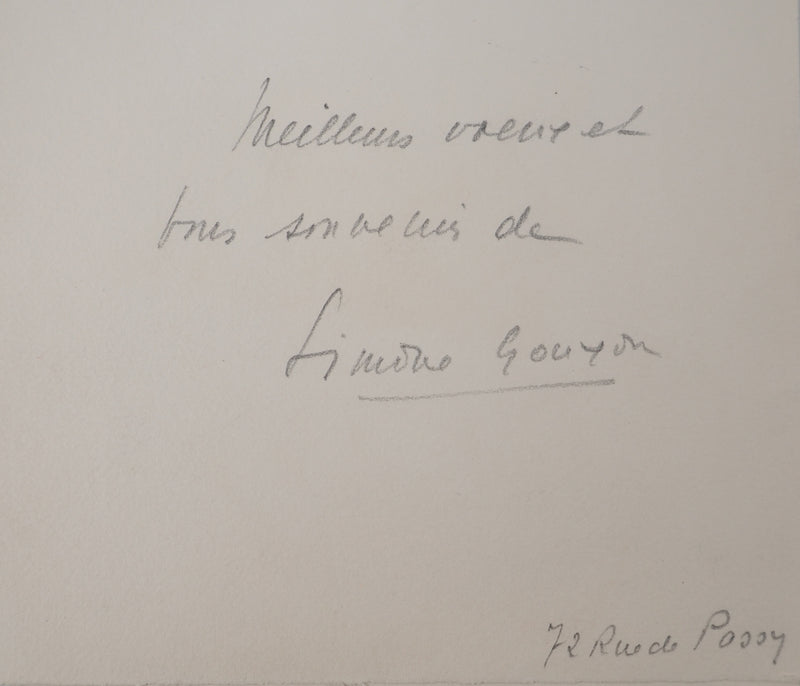 Meilleurs voeux et
bons souvenirs de
Simone Gouzon
72 Rue de Passy